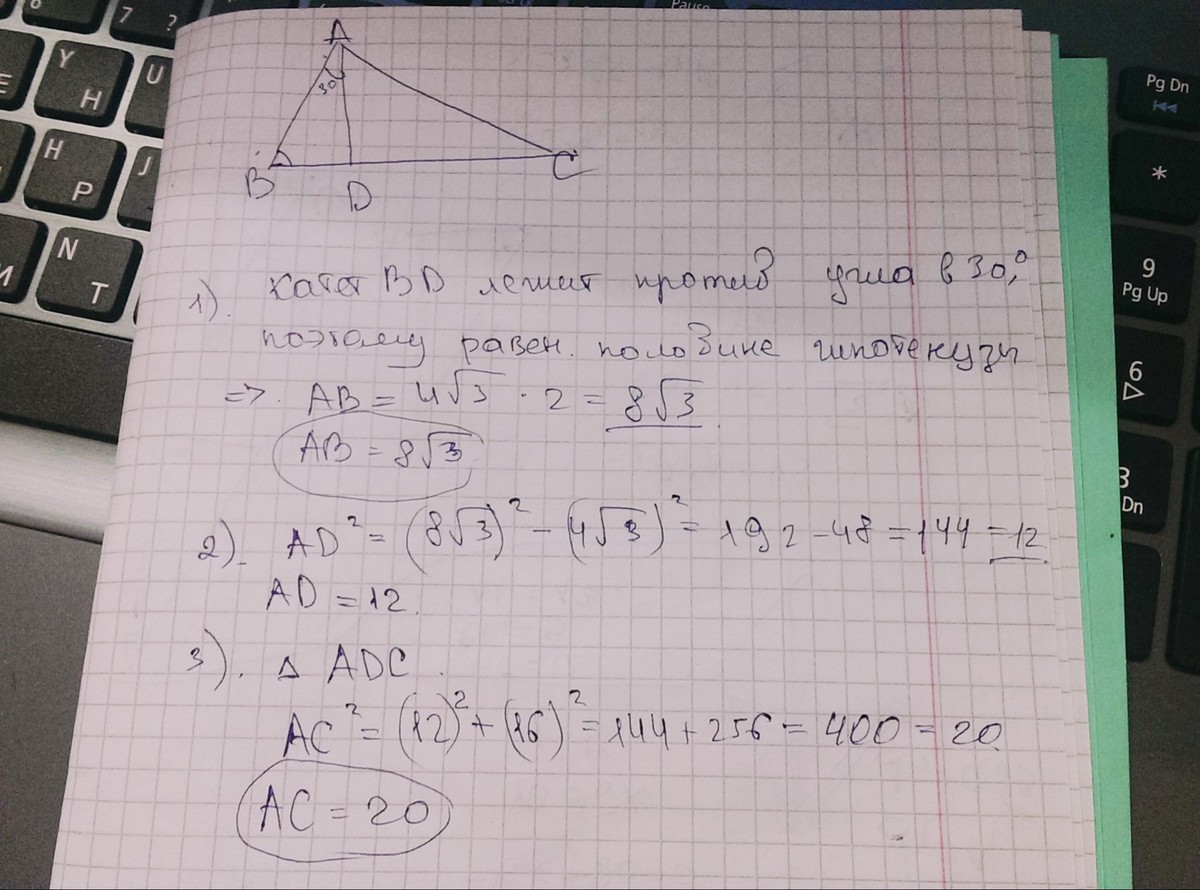 Pause
7 ?
Y
Н
U
H
Р
J
N
Т
Е
И
Pg Dn
*
9
Pg Up
6
3
Dn
A
30
B
D
C
1). Катет BD лежит против угла в 30°,
поэтому равен. половине гипотенузы
=> AB = 4√3 · 2 = 8√3
AB = 8√3
2). AD² = (8√3)² - (4√3)² = 192 - 48 = 144 = 12.
AD = 12.
3). Δ ADC.
AC² = (12)² + (16)² = 144 + 256 = 400 = 20
AC = 20